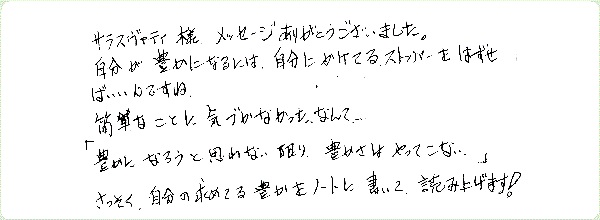 サラスヴァティ様、メッセージありがとうございました。
自分が豊かになるには、自分にかけてるストッパーをはずせ
ばいいんですね。
簡単なことに気づかなかったなんて…
「豊かになろうと思わない限り、豊かさはやってこない。」
さっそく、自分の求めてる豊かさをノートに書いて、読み上げます!